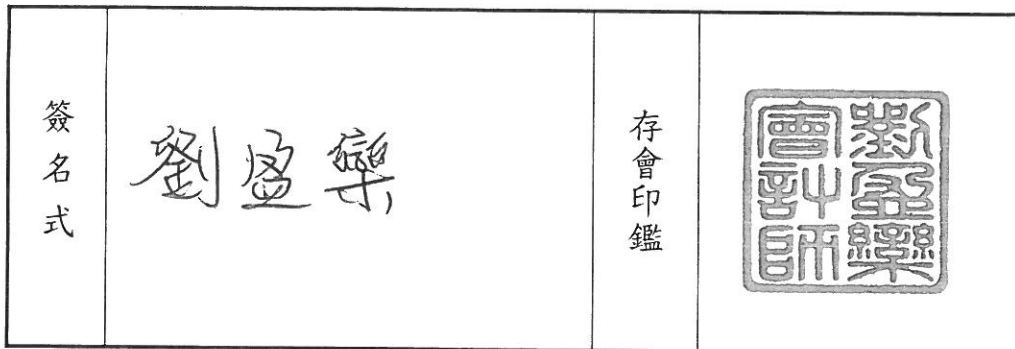 簽名式
劉盈欒
存會印鑑
劉盈欒
會計師